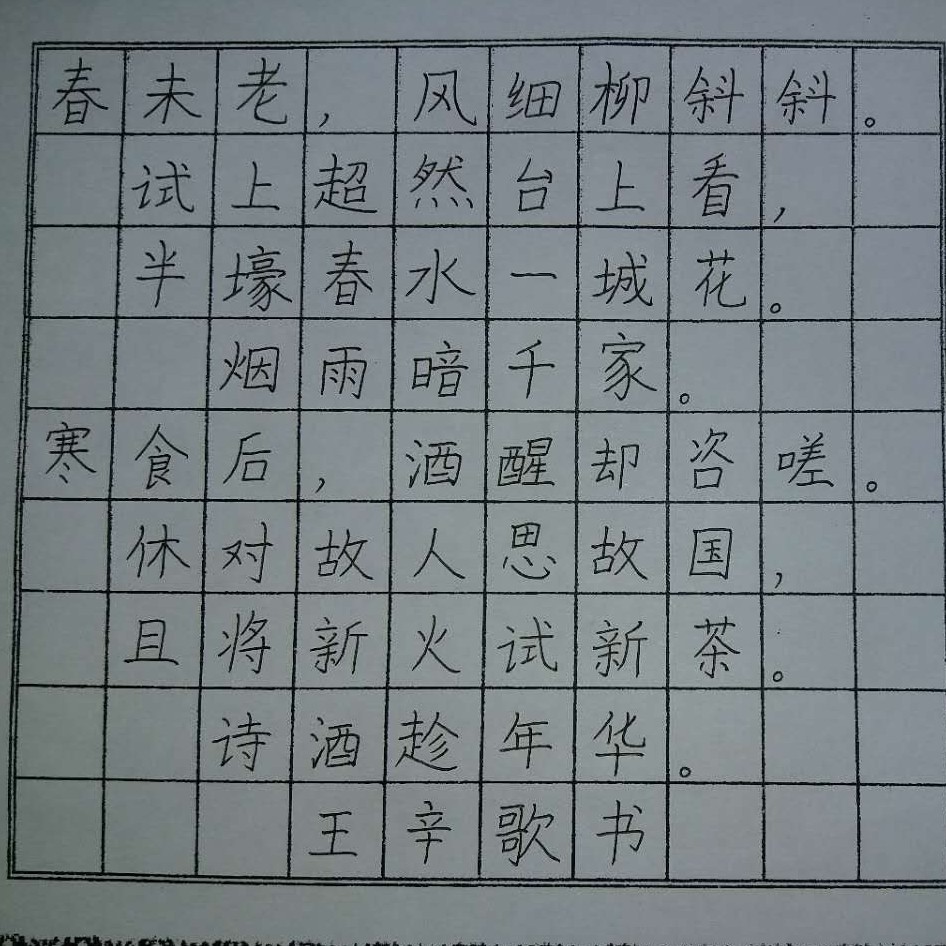 春未老，风细柳斜斜。
试上超然台上看，
半壕春水一城花。
烟雨暗千家。
寒食后，酒醒却咨嗟。
休对故人思故国，
且将新火试新茶。
诗酒趁年华。
王辛歌书